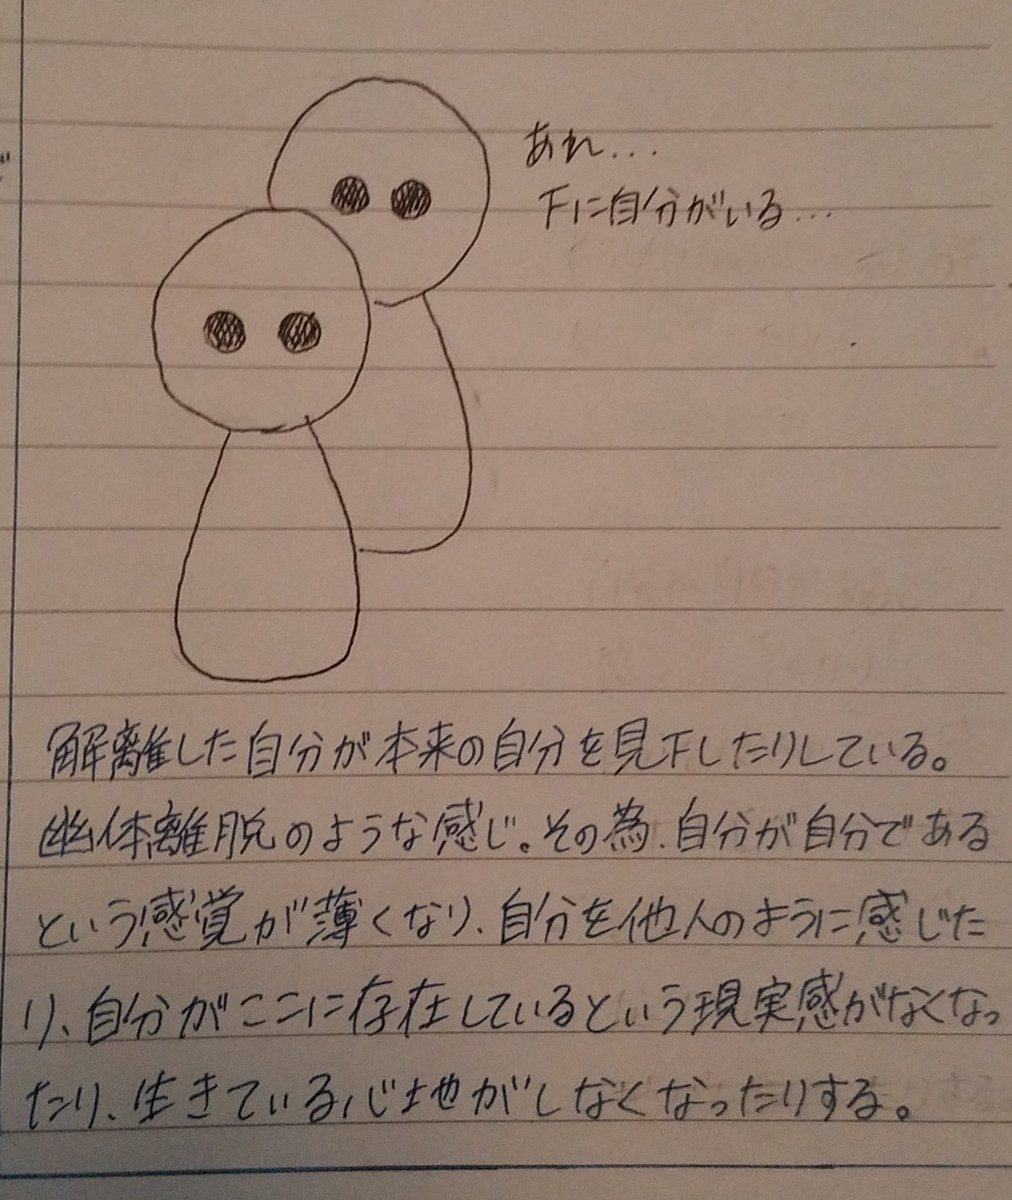 あれ...
下に自分がいる...
解離した自分が本来の自分を見下したりしている。
幽体離脱のような感じ。その為、自分が自分である
という感覚が薄くなり、自分を他人のように感じた
り、自分がここに存在しているという現実感がなくなっ
たり、生きている心地がしなくなったりする。